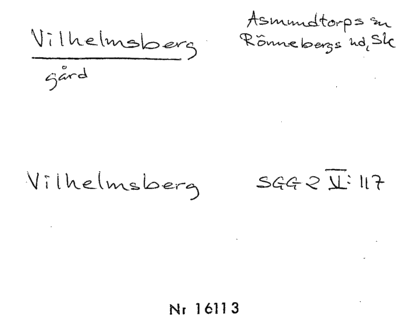 Vilhelmsberg
gård
Asmundtorps sn
Rönnebergs hd, Sk
Vilhelmsberg
SGG 2 V: 117
Nr 16113